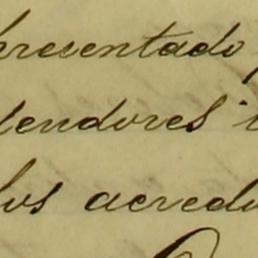 presentado
tendores
los acredi